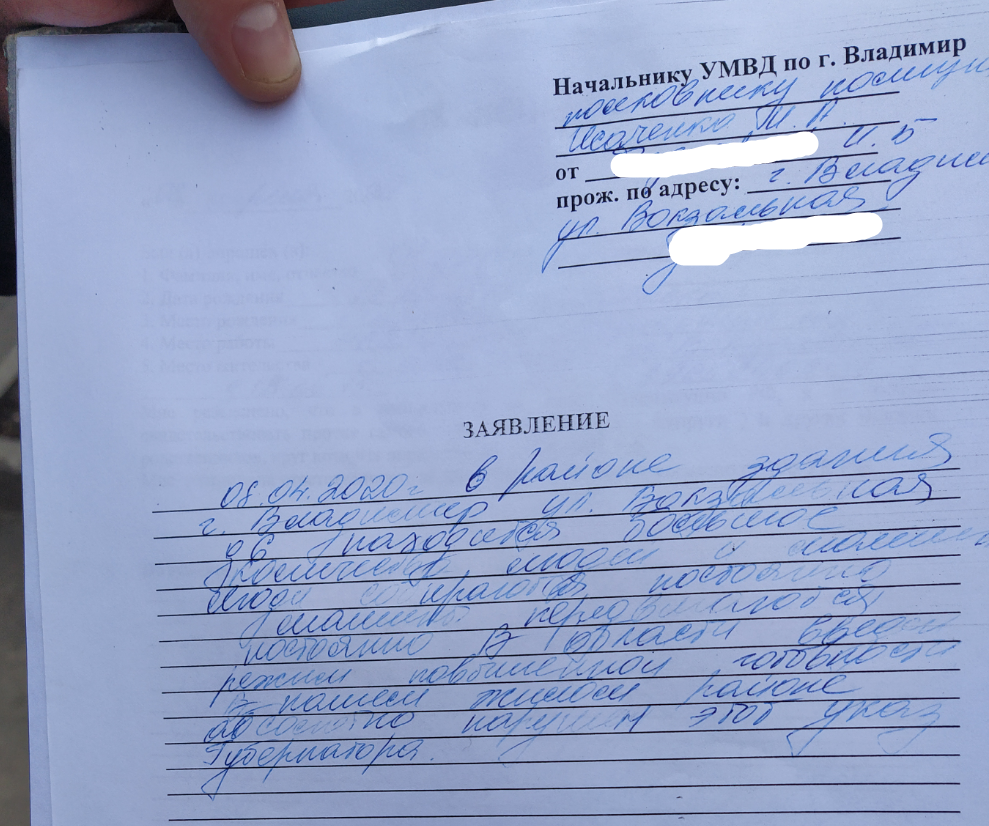 Начальнику УМВД по г. Владимир
полковнику полиции
Исаченко М. А.
от И. Б
прож. по адресу: г. Владим
ул. Вокзальная
ЗАЯВЛЕНИЕ
08.04.2020г в районе здания
г. Владимир ул. Вокзальная
находится большое
количество людей и
люди собираются постоянно
машины
постоянно в области введен
режим повышенной готовности
в нашем жилом районе
абсолютно нарушен этот указ
Губернатора.